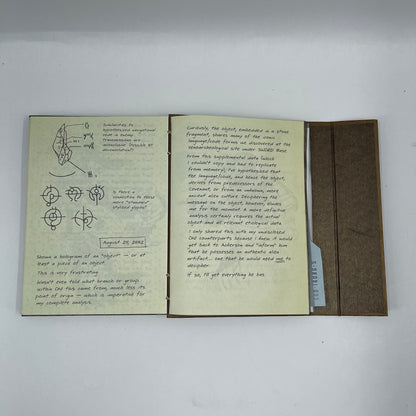 Similarities to
hypothesized navigational
Translations are
Is there a
connection to these
more
August 25, 2552
Shown a hologram of an "object" — or at
least a piece of an object.
This is very frustrating.
Wasn't even told what branch or group
within ONI this came from, much less its
point of origin — which is imperative for
my complete analysis.
Curiously, the object, embedded in a stone
fragment, shares many of the same
language/code forms we discovered at the
xenoarcheological site under SWORD Base.
From this supplemental data (which
I couldn't copy and had to replicate
from memory), I've hypothesized that
the language/code, and hence the object,
derives from predecessors of the
Covenant, or from an unknown, more
ancient alien culture. Deciphering the
message on the object, however, eludes
me for the moment. A more definitive
analysis certainly requires the actual
object and all relevant etiological data.
I only shared this with my unclassified
ONI counterparts because I knew it would
get back to Ackerson and "inform" him
that he possesses an authentic alien
artifact... one that he would need me to
decipher.
If so, I'll get everything he has.